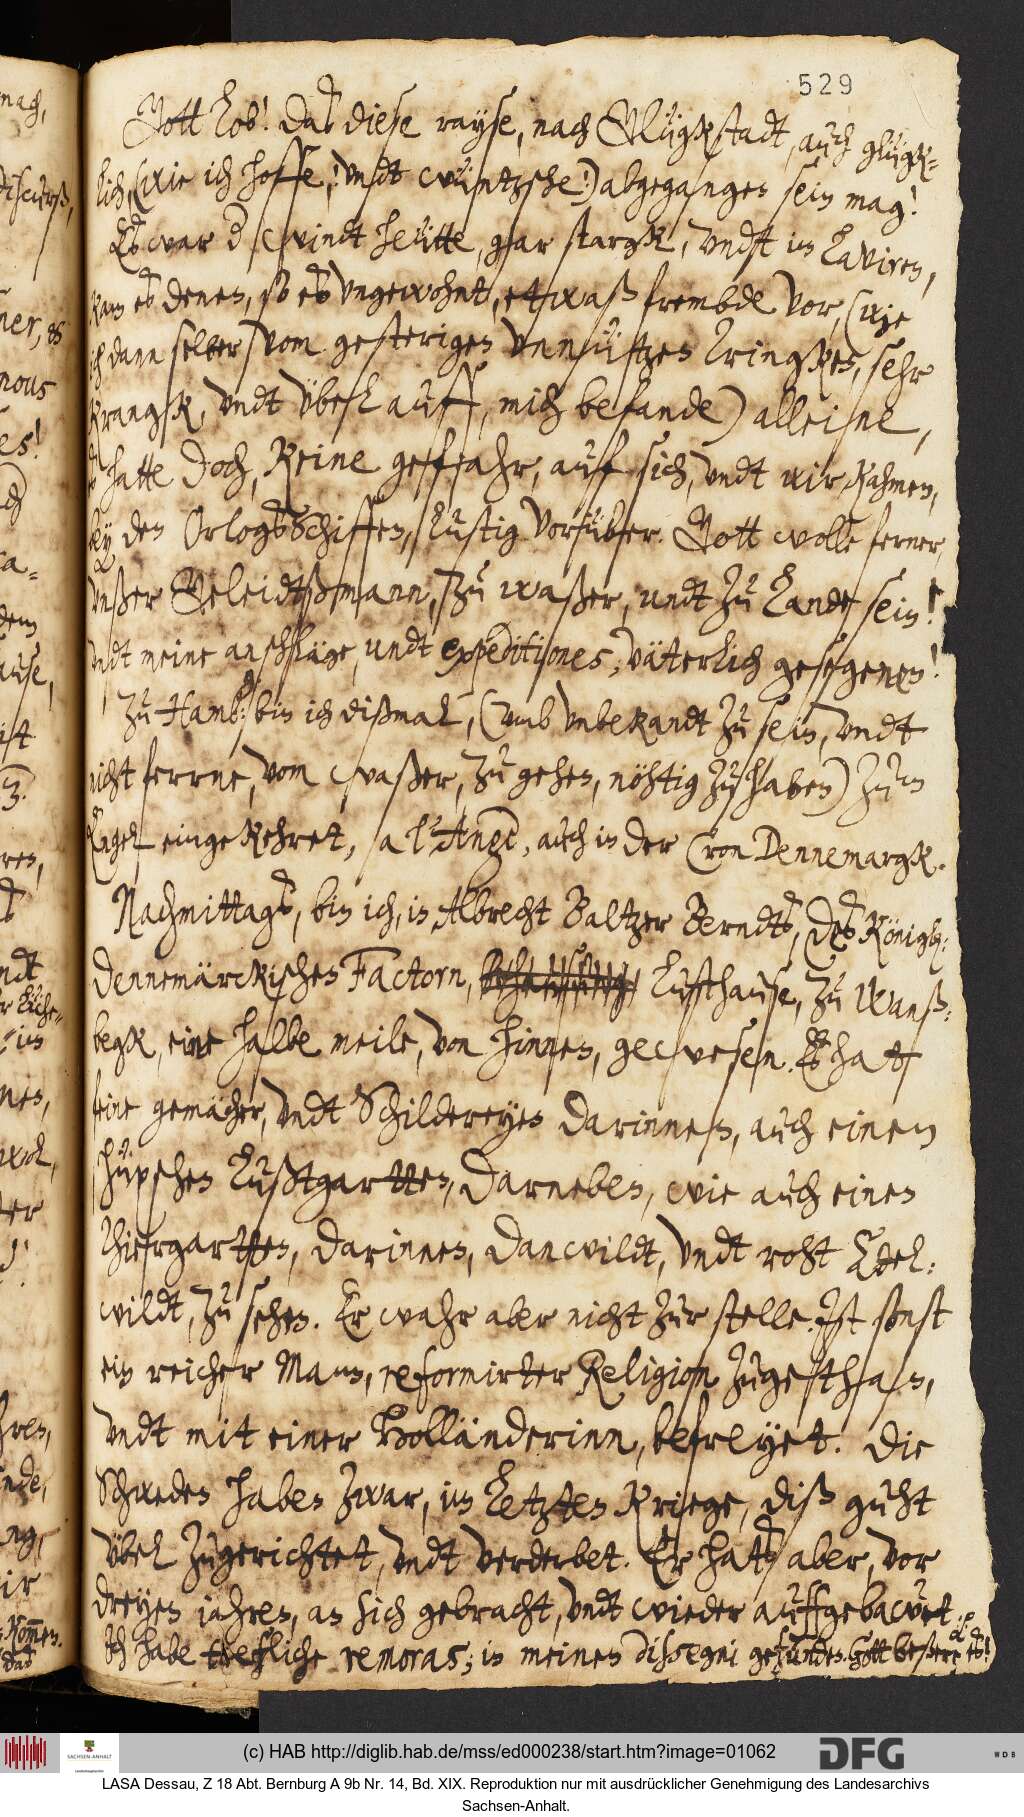 529
Gott lob! das diese rayse, nach Glügkstadt, auch glügk-
lich, (wie ich hoffe,! vndt wüntzsche!) abgegangen sein mag!
Es war der windt heütte, gar stargk, vndt im laviren,
kam es denen, so es vngewohnt, etwaß frembde vor, (wie
ich dann selber vom gesterigen vnnützen tringken, sehr
krangk, vndt übel auff, mich befande) alleine,
es hatte doch, keine geffahr, auf sich, vndt wir kahmen,
bey den Orlogsschiffen, lustig vorüber. Gott wolle ferner,
vnßer Geleidtßmann, zu waßer, vndt zu Lande sein!
vndt meine anschläge, vndt expeditiones, väterlich gesegenen!
Zu Hamb: bin ich dißmal, (vmb vnbekandt zu sein, vndt
nicht ferrne, vom waßer, zu gehen, nöhtig zu haben) zum
Engel eingekehret, a l'Ange, auch in der Cron Dennemargk.
Nachmittags, bin ich, in Albrecht Baltzer Berndts, (des Königl:
Dennemärckischen Factorn, Lusthause, zu Wanß-
begk, eine halbe meile, von hinnen, gewesen. Es hat
feine gemächer, vndt Schildereyen darinnen, auch einen
hüpschen Lustgartten, darneben, wie auch einen
Thiergartten, darinnen, danwildt, vndt roht Edel-
wildt, zu sehen. Er wahr aber nicht zur stelle. Ist sonst
ein reicher Mann, reformirter Religion zugethan,
vndt mit einer Holländerinn, befreyet. Die
Schweden haben zwar, im letzten Kriege, diß guht
übel zugerichtet, vndt verderbet. Er hats aber, vor
dreyen iahren, an sich gebracht, vndt wieder auffgebawet.
Ich habe treffliche remoras, in meinen dissegni gefunden. Gott beßere es!
(c) HAB http://diglib.hab.de/mss/ed000238/start.htm?image=01062
SACHSEN-ANHALT
DFG
WDB
LASA Dessau, Z 18 Abt. Bernburg A 9b Nr. 14, Bd. XIX. Reproduktion nur mit ausdrücklicher Genehmigung des Landesarchivs
Sachsen-Anhalt.